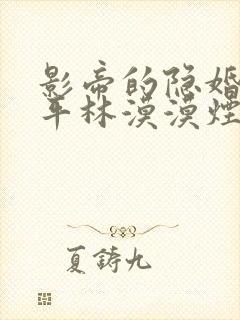 影帝的隐婚
平林漠漠烟
夏铸九